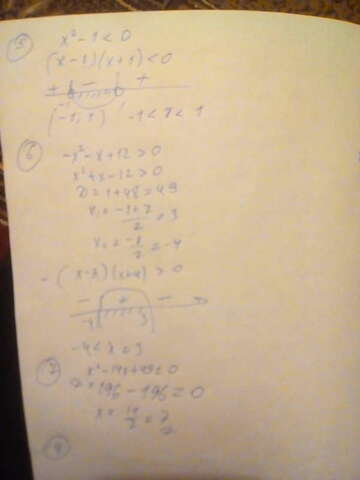 5
x² - 1 < 0
(x - 1)(x + 1) < 0
+ - +
-1 1
(-1, 1) -1 < x < 1
6
-x² - x + 12 > 0
x² + x - 12 > 0
D = 1 + 48 = 49
x₁ = (-1 + 7)/2 = 3
x₂ = -8/2 = -4
-(x - 3)(x + 4) > 0
- + -
-4 3
-4 < x < 3
7
x² - 14x + 49 ≤ 0
D = 196 - 196 = 0
x = 14/2 = 7